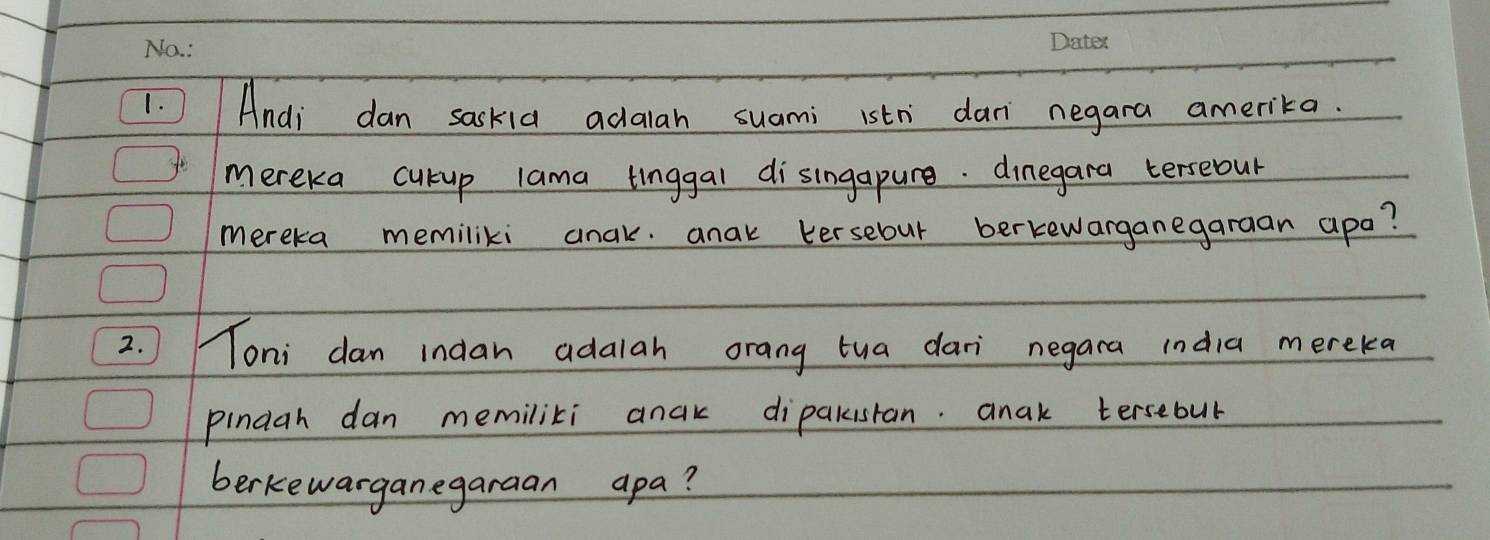 No.: Date:
1. Andi dan saskia adalah suami istri dari negara amerika.
mereka cukup lama tinggal di singapure. dinegara tersebut
mereka memiliki anak. anak tersebut berkewarganegaraan apa?
2. Toni dan indah adalah orang tua dari negara india mereka
pindah dan memiliki anak dipakistan. anak tersebut
berkewarganegaraan apa?